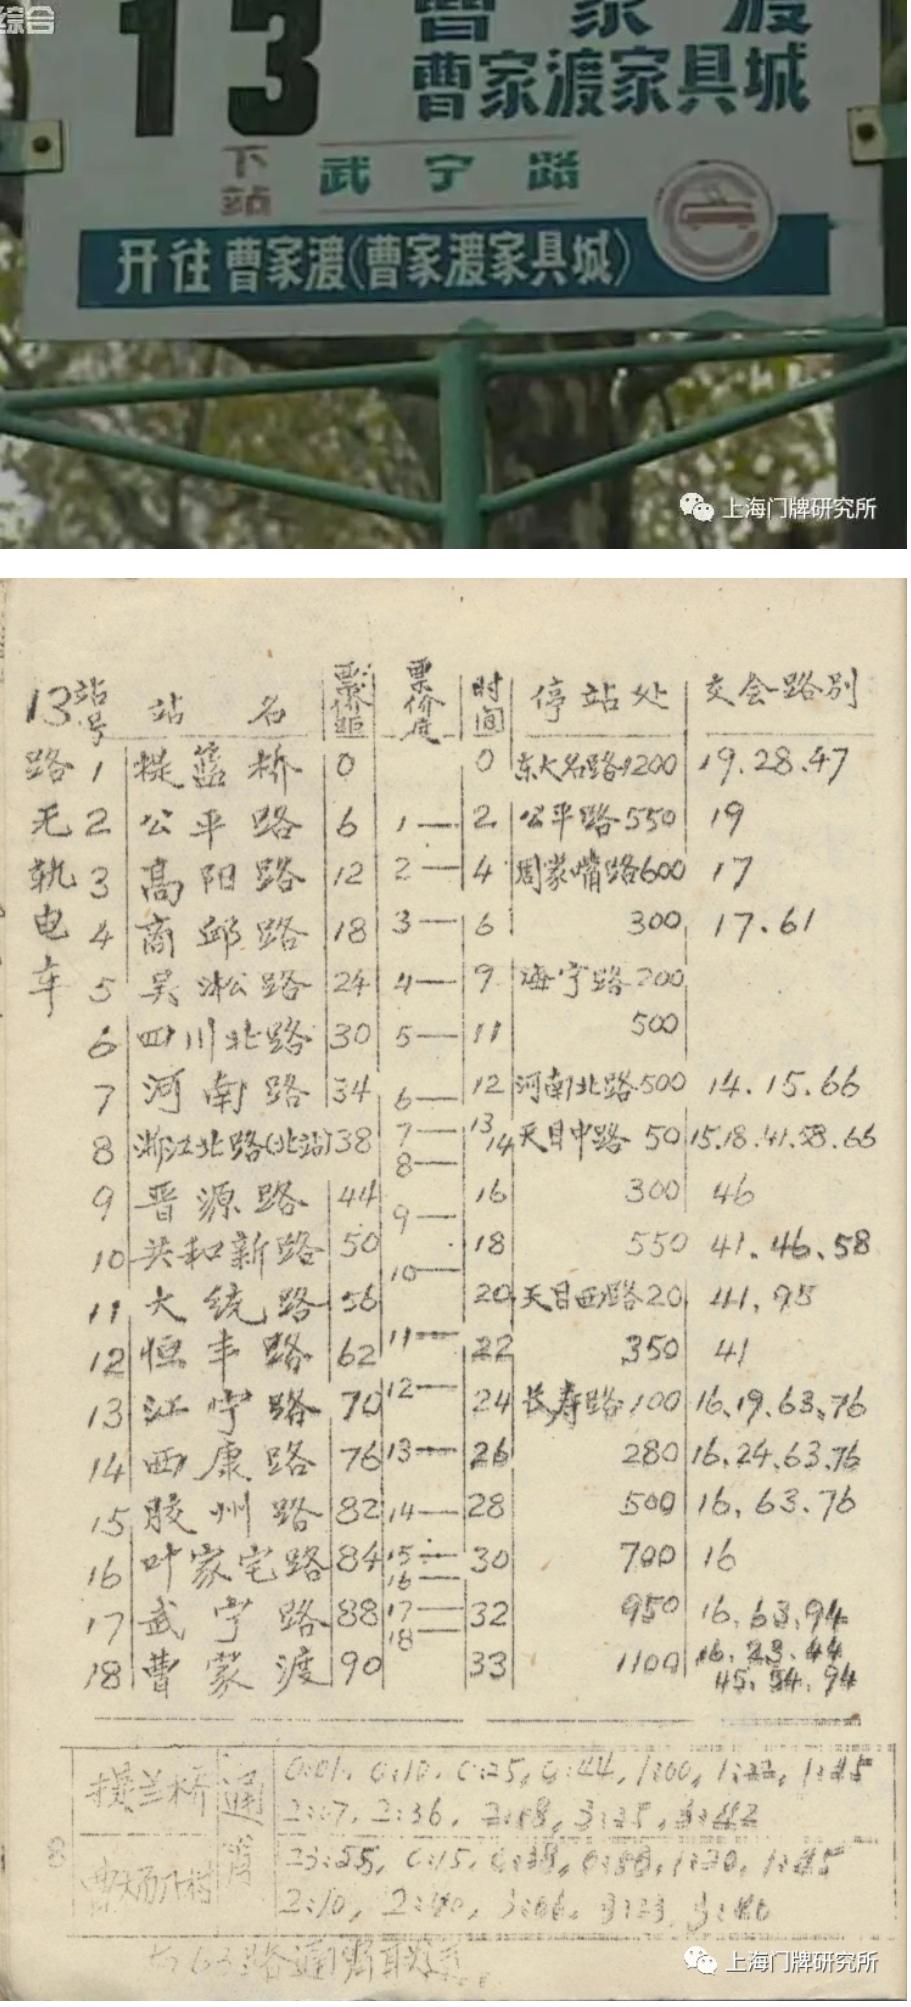 综合
13
曹家渡
曹家渡家具城
下站 武宁路
开往曹家渡(曹家渡家具城)
上海门牌研究所
13路无轨电车
站号 站名 票价距 票价度 时间 停站处 交会路别
1 提篮桥 0 0 东大名路1200 19.28.47
2 公平路 6 1— 2 公平路550 19
3 高阳路 12 2— 4 周家嘴路600 17
4 商邱路 18 3— 6 300 17.61
5 吴淞路 24 4— 9 海宁路200
6 四川北路 30 5— 11 500
7 河南路 34 6— 12 河南北路500 14.15.66
8 浙江北路(北站) 38 7— 8— 13 14 天目中路 50 15.18.41.58.66
9 晋源路 44 9— 16 300 46
10 共和新路 50 10— 18 550 41.46.58
11 大统路 56 20 天目西路20 41.95
12 恒丰路 62 11— 22 350 41
13 江宁路 70 12— 24 长寿路100 16.19.63.76
14 西康路 76 13— 26 280 16.24.63.76
15 胶州路 82 14— 28 500 16.63.76
16 叶家宅路 84 15— 16— 30 700 16
17 武宁路 88 17— 18— 32 950 16.63.94
18 曹家渡 90 33 1100 16.23.44
45.54.94
提兰桥 通宵 0:01, 0:10, 0:25, 0:44, 1:00, 1:22, 1:45
2:07, 2:36, 3:25, 3:42
23:55, 0:15, 0:38, 1:20, 1:45
2:10, 2:40, 3:06, 3:23, 3:40
8
63路通宵
上海门牌研究所